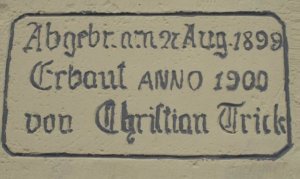 Abgebr. am 21 Aug. 1899
Erbaut ANNO 1900
von Christian Trick